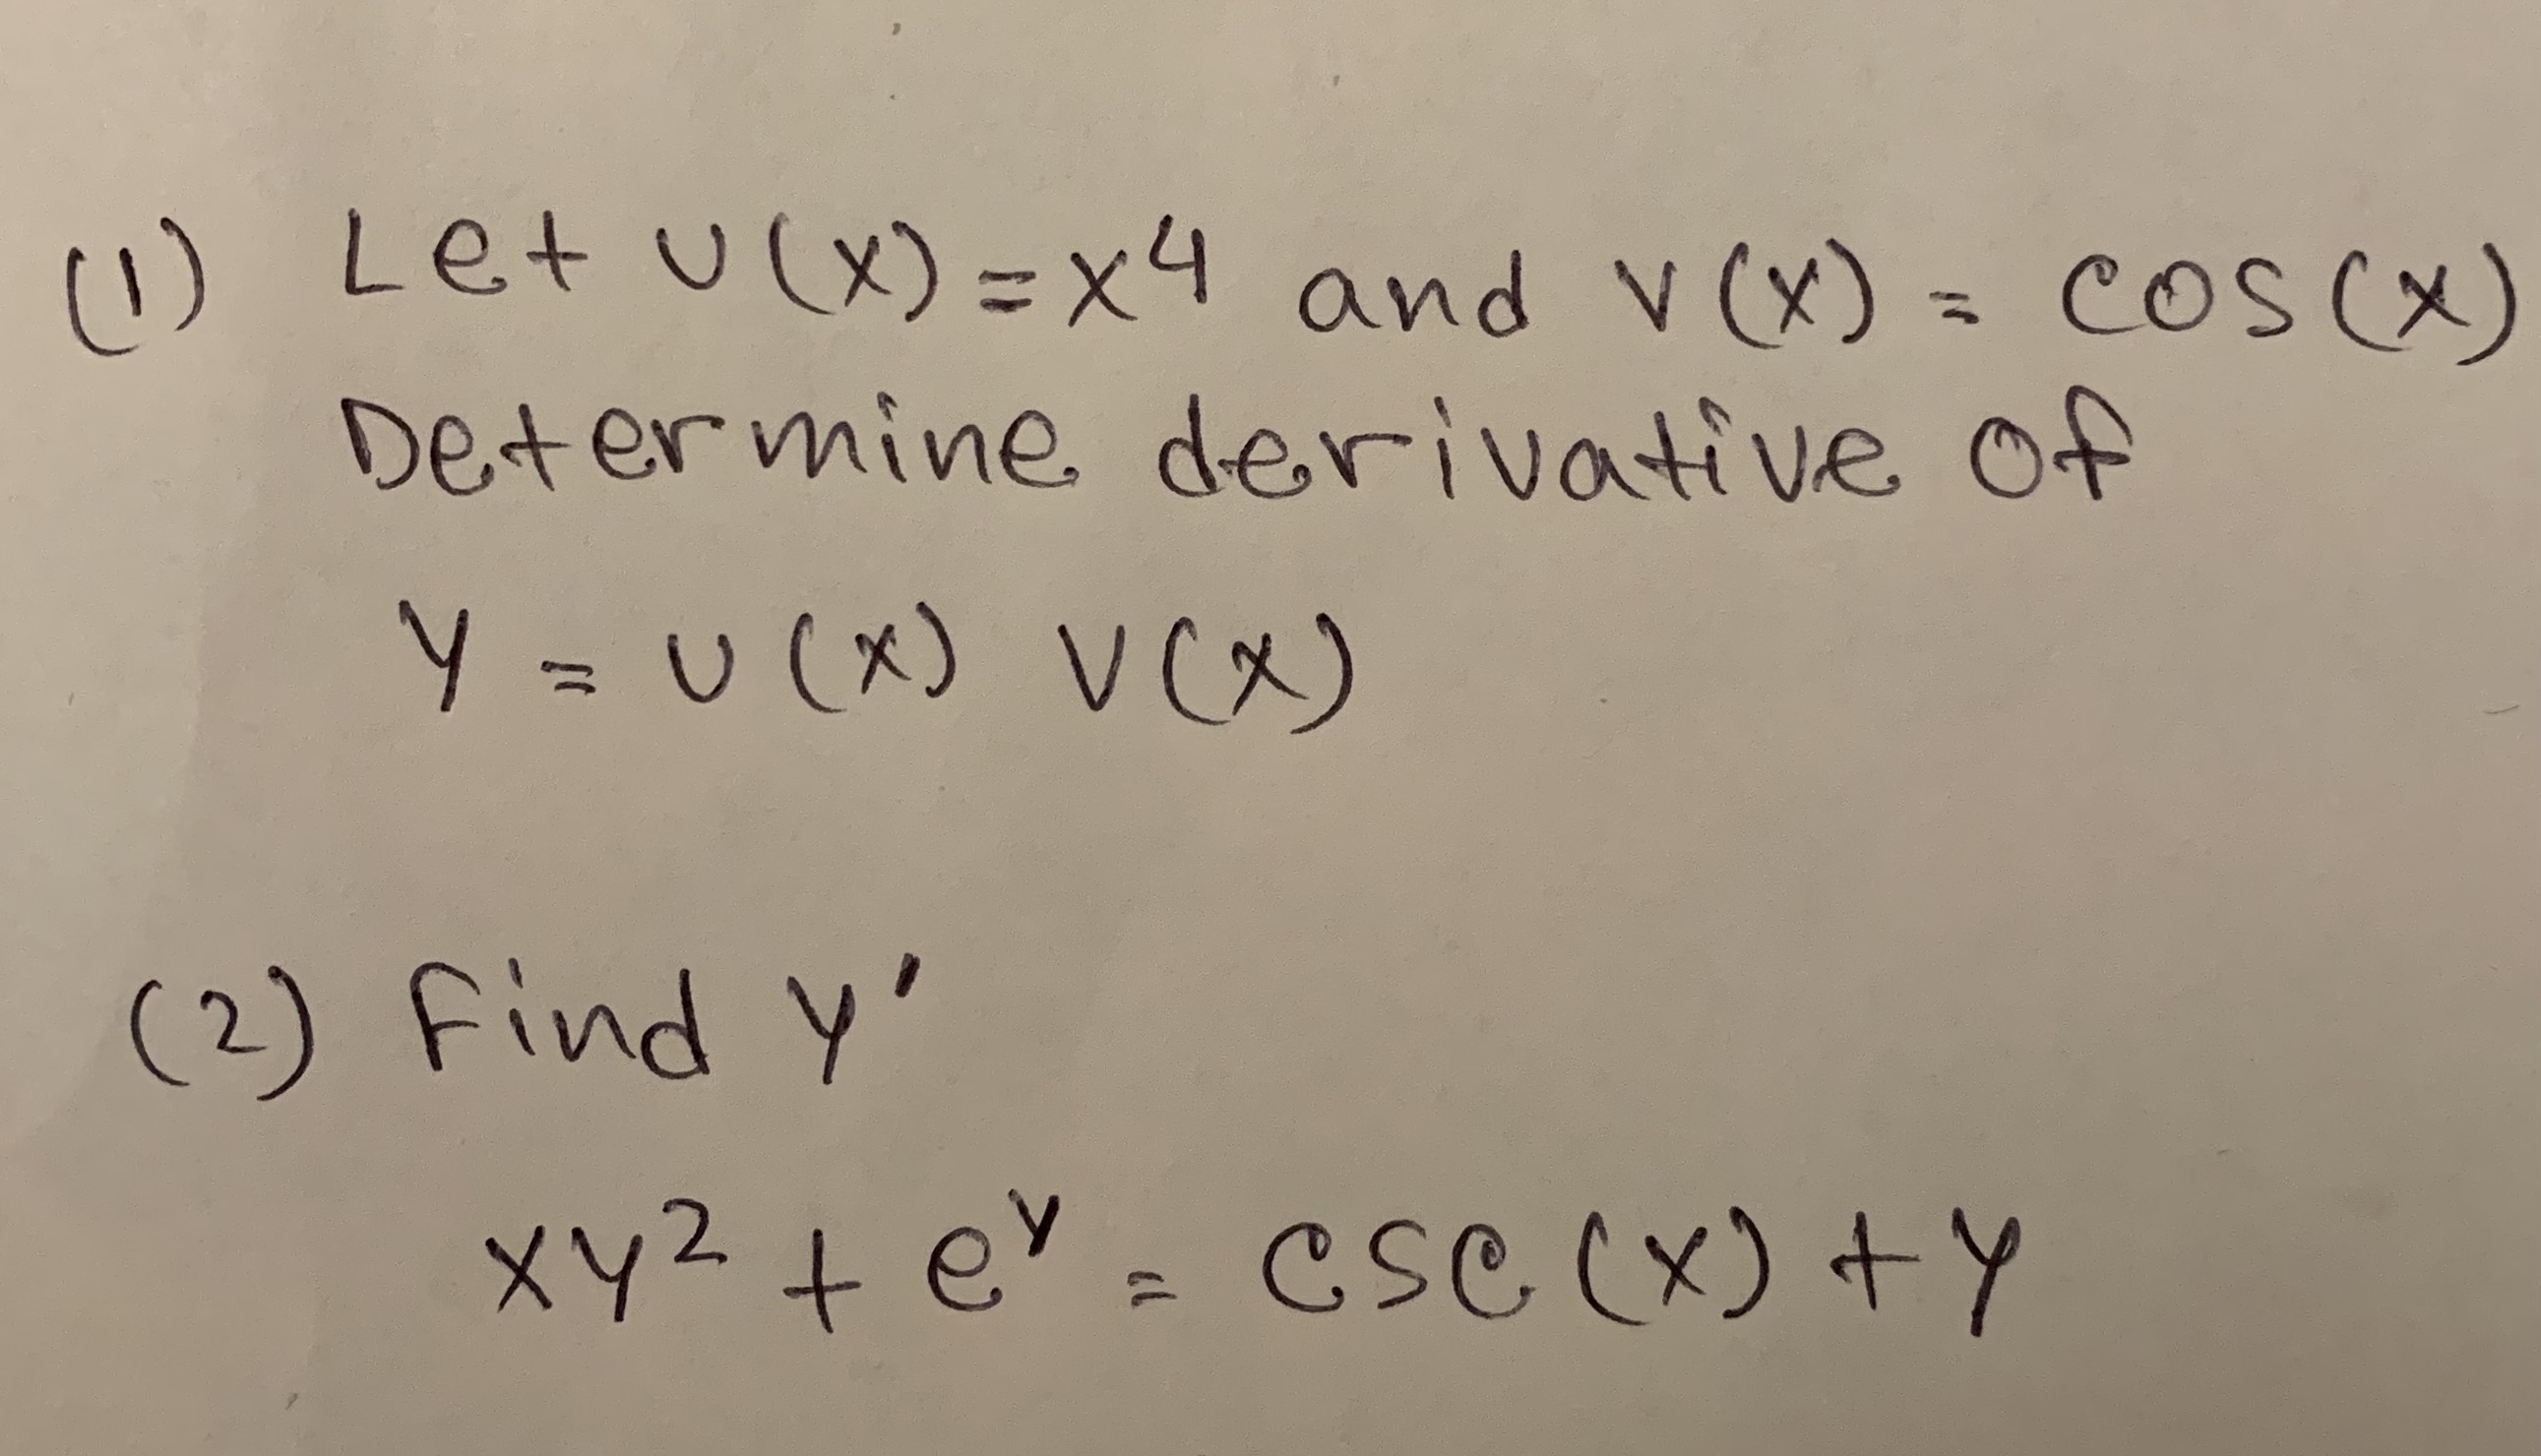 (1) Let u(x) = x⁴ and v(x) = cos(x)
Determine derivative of
y = u(x) v(x)
(2) Find y'
xy² + eʸ = csc(x) + y